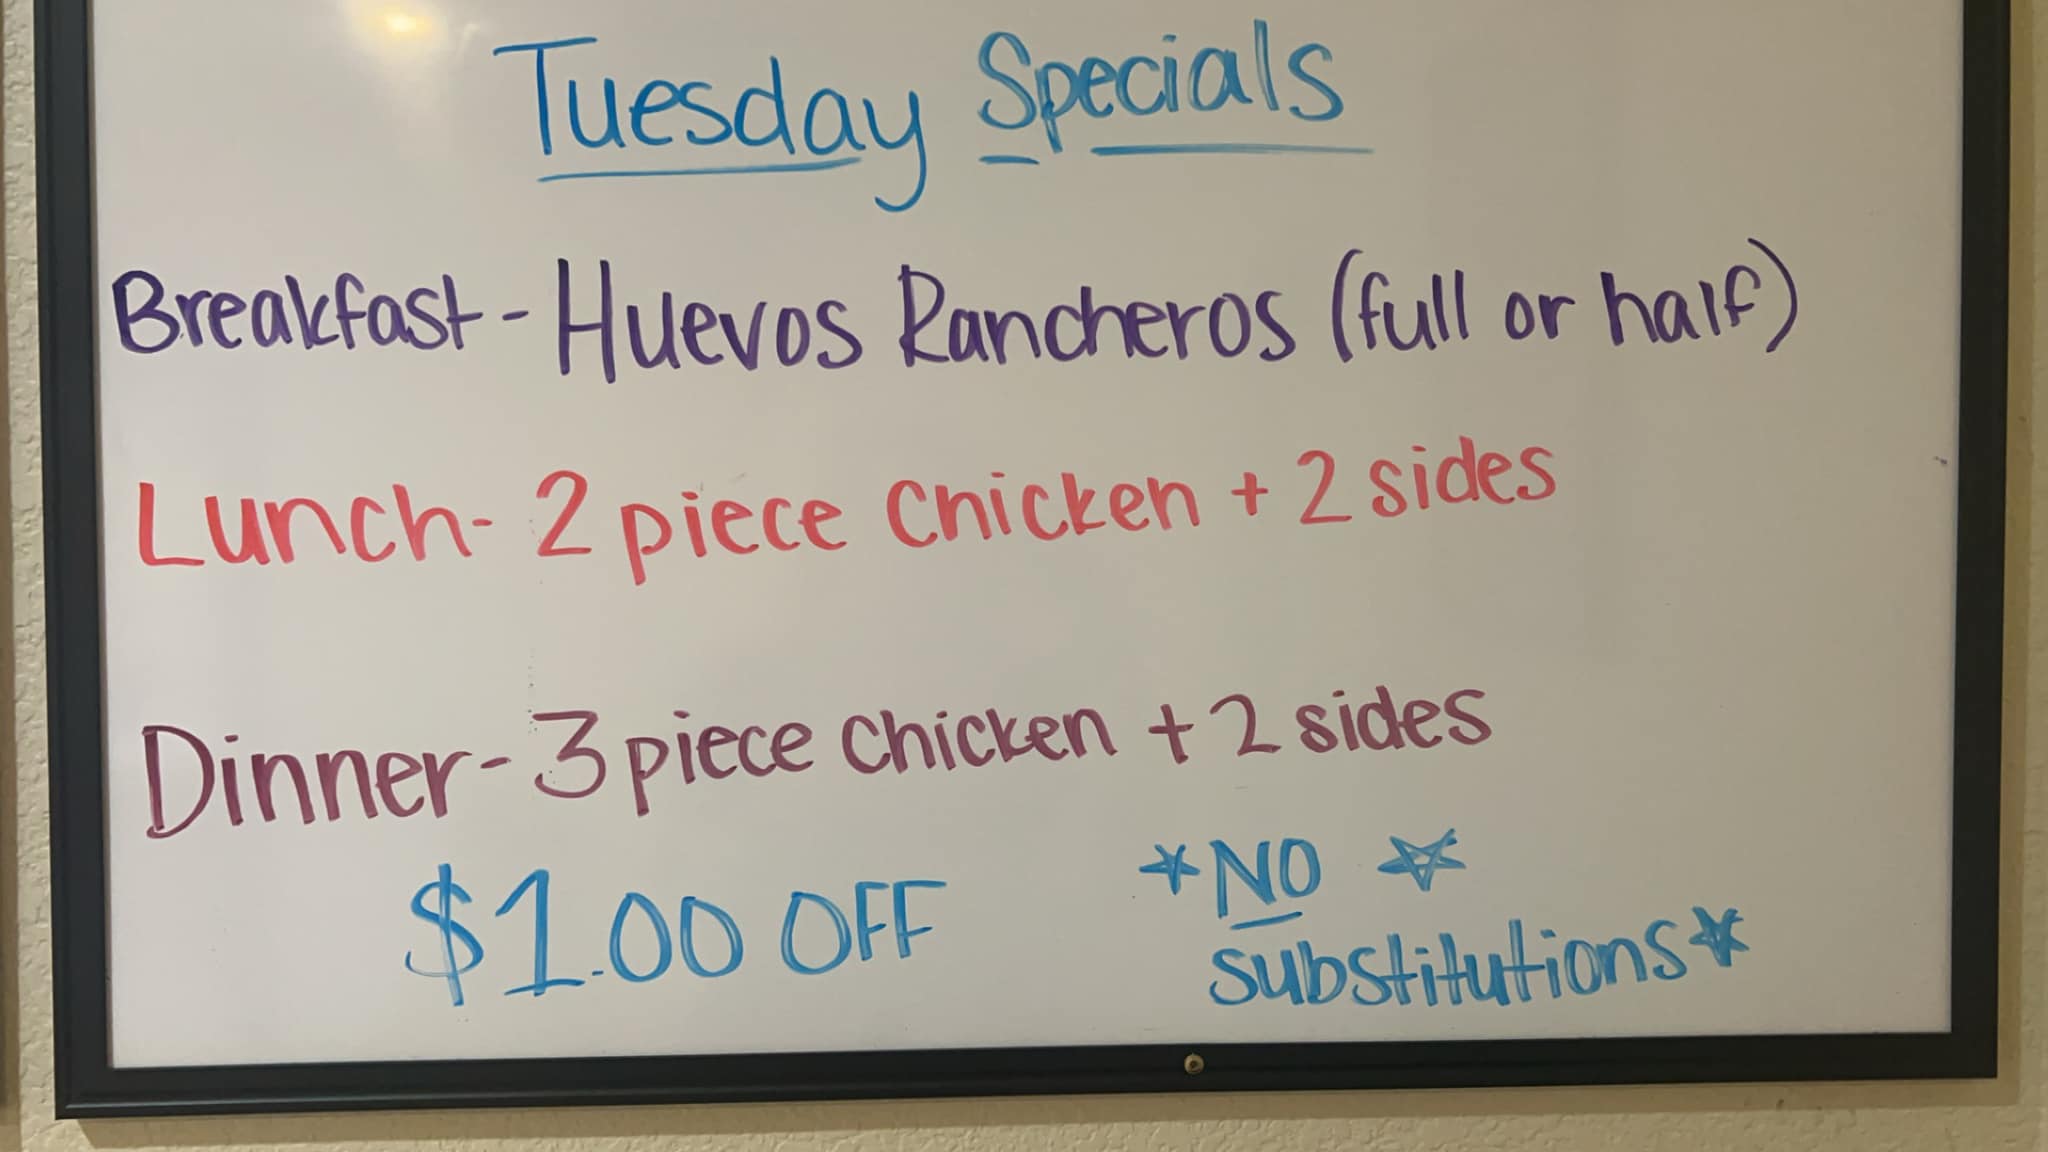 Tuesday Specials
Breakfast - Huevos Rancheros (full or half)
Lunch - 2 piece Chicken + 2 sides
Dinner - 3 piece Chicken + 2 sides
$1.00 OFF
*NO *
substitutions*